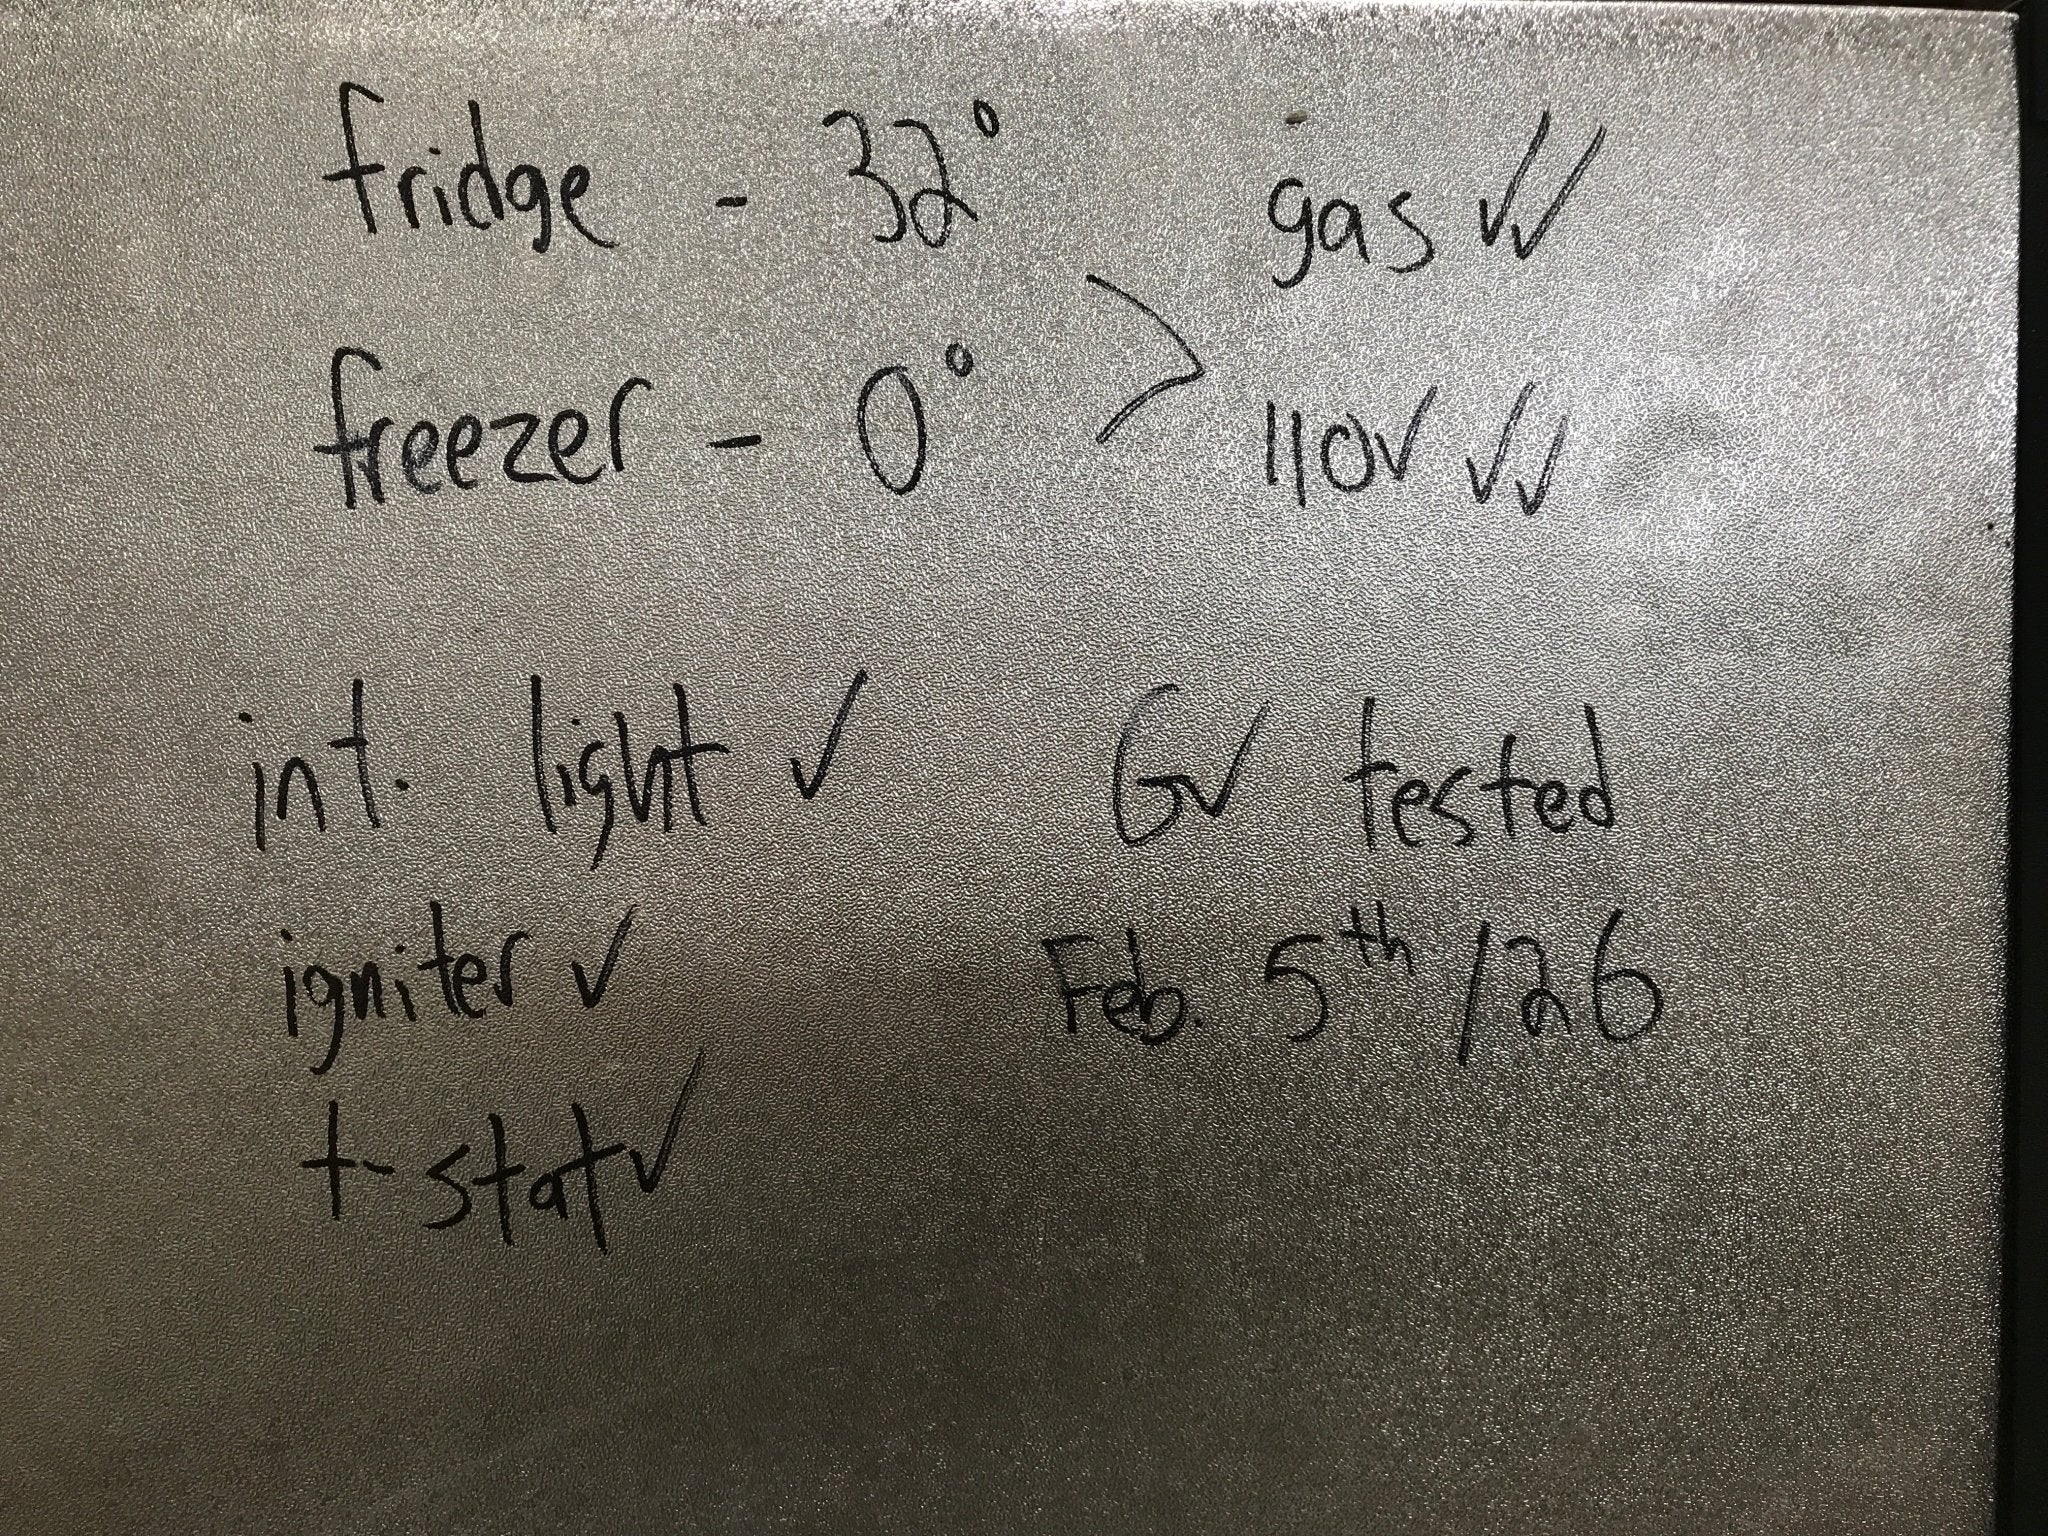 fridge - 32° gas ✓✓
freezer - 0° > 110V ✓✓
int. light ✓ GV tested
igniter ✓ Feb. 5th /26
t-stat ✓